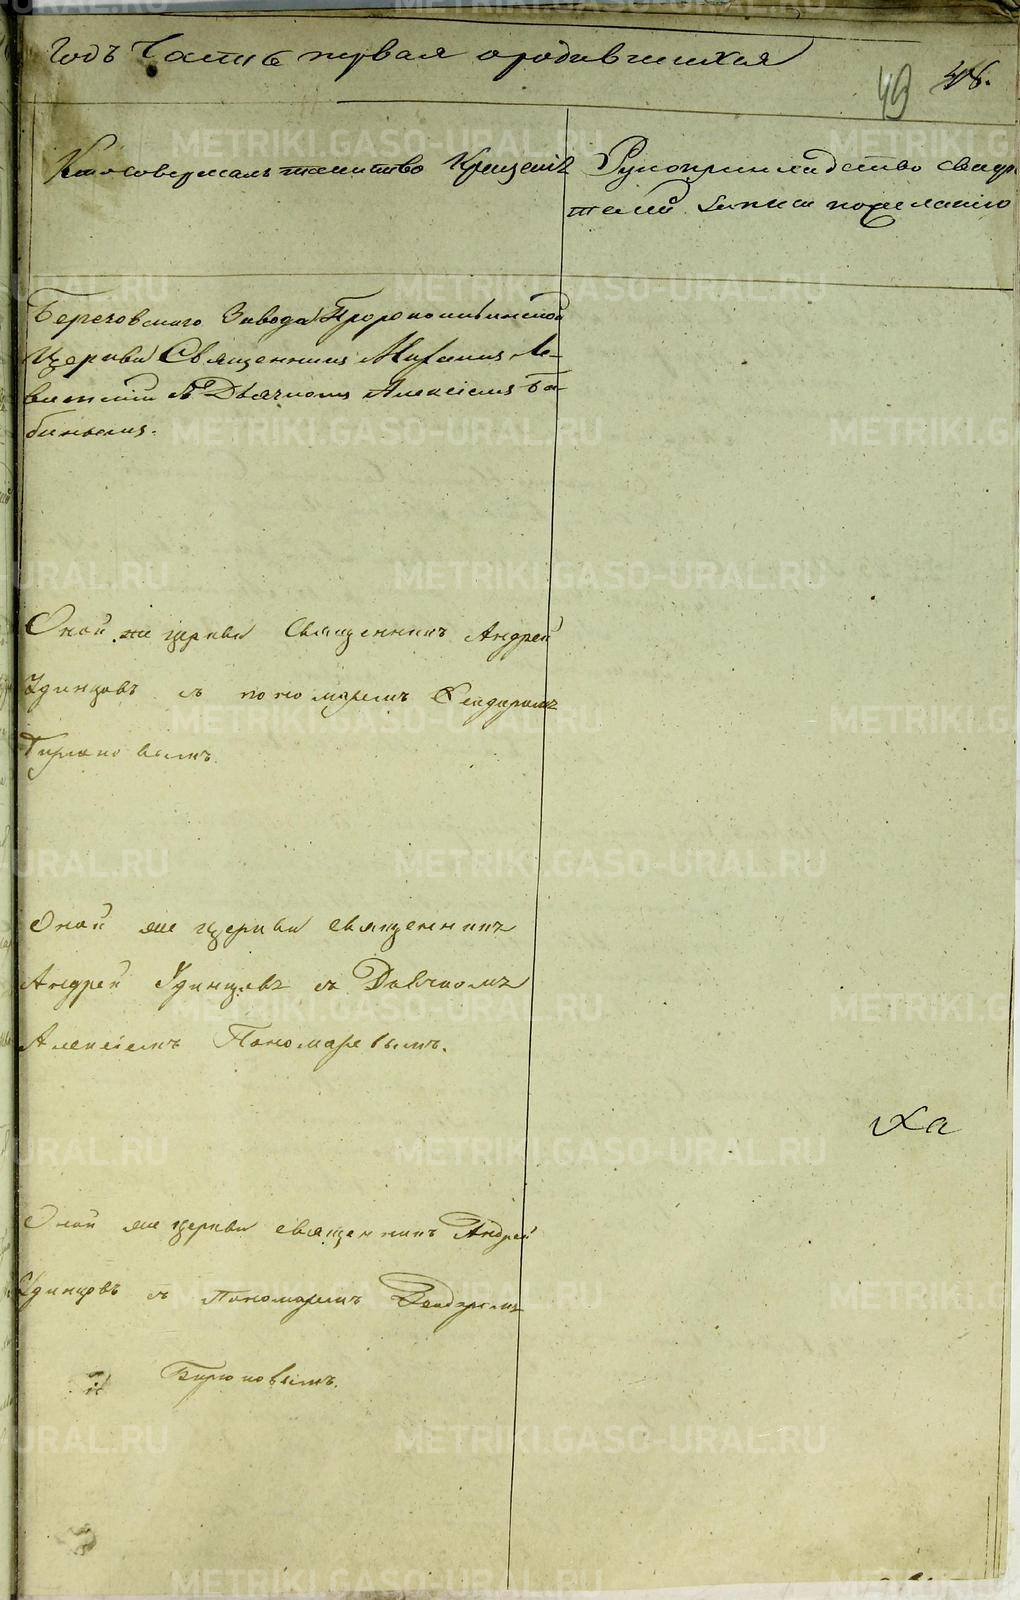 Годъ Часть первая о родившихся
49 48.
Кто совершалъ таинство Крещенія
Рукоприкладство свидѣ-
телей записи по желанію
Березовскаго Завода Пророкоильинской
Церкви Священникъ
съ Дьячкомъ Алексіемъ Ба-
биновымъ.
Оной же церкви Священникъ Андрей
Удинцовъ съ пономаремъ Феодоромъ
Бирюковымъ.
Оной же церкви священникъ
Андрей Удинцовъ съ Дьячкомъ
Алексіемъ Пономаревымъ.
Ха
Оной же церкви священникъ Андрей
Удинцовъ съ Пономаремъ Феодоромъ
Бирюковымъ.
METRIKI.GASO-URAL.RU